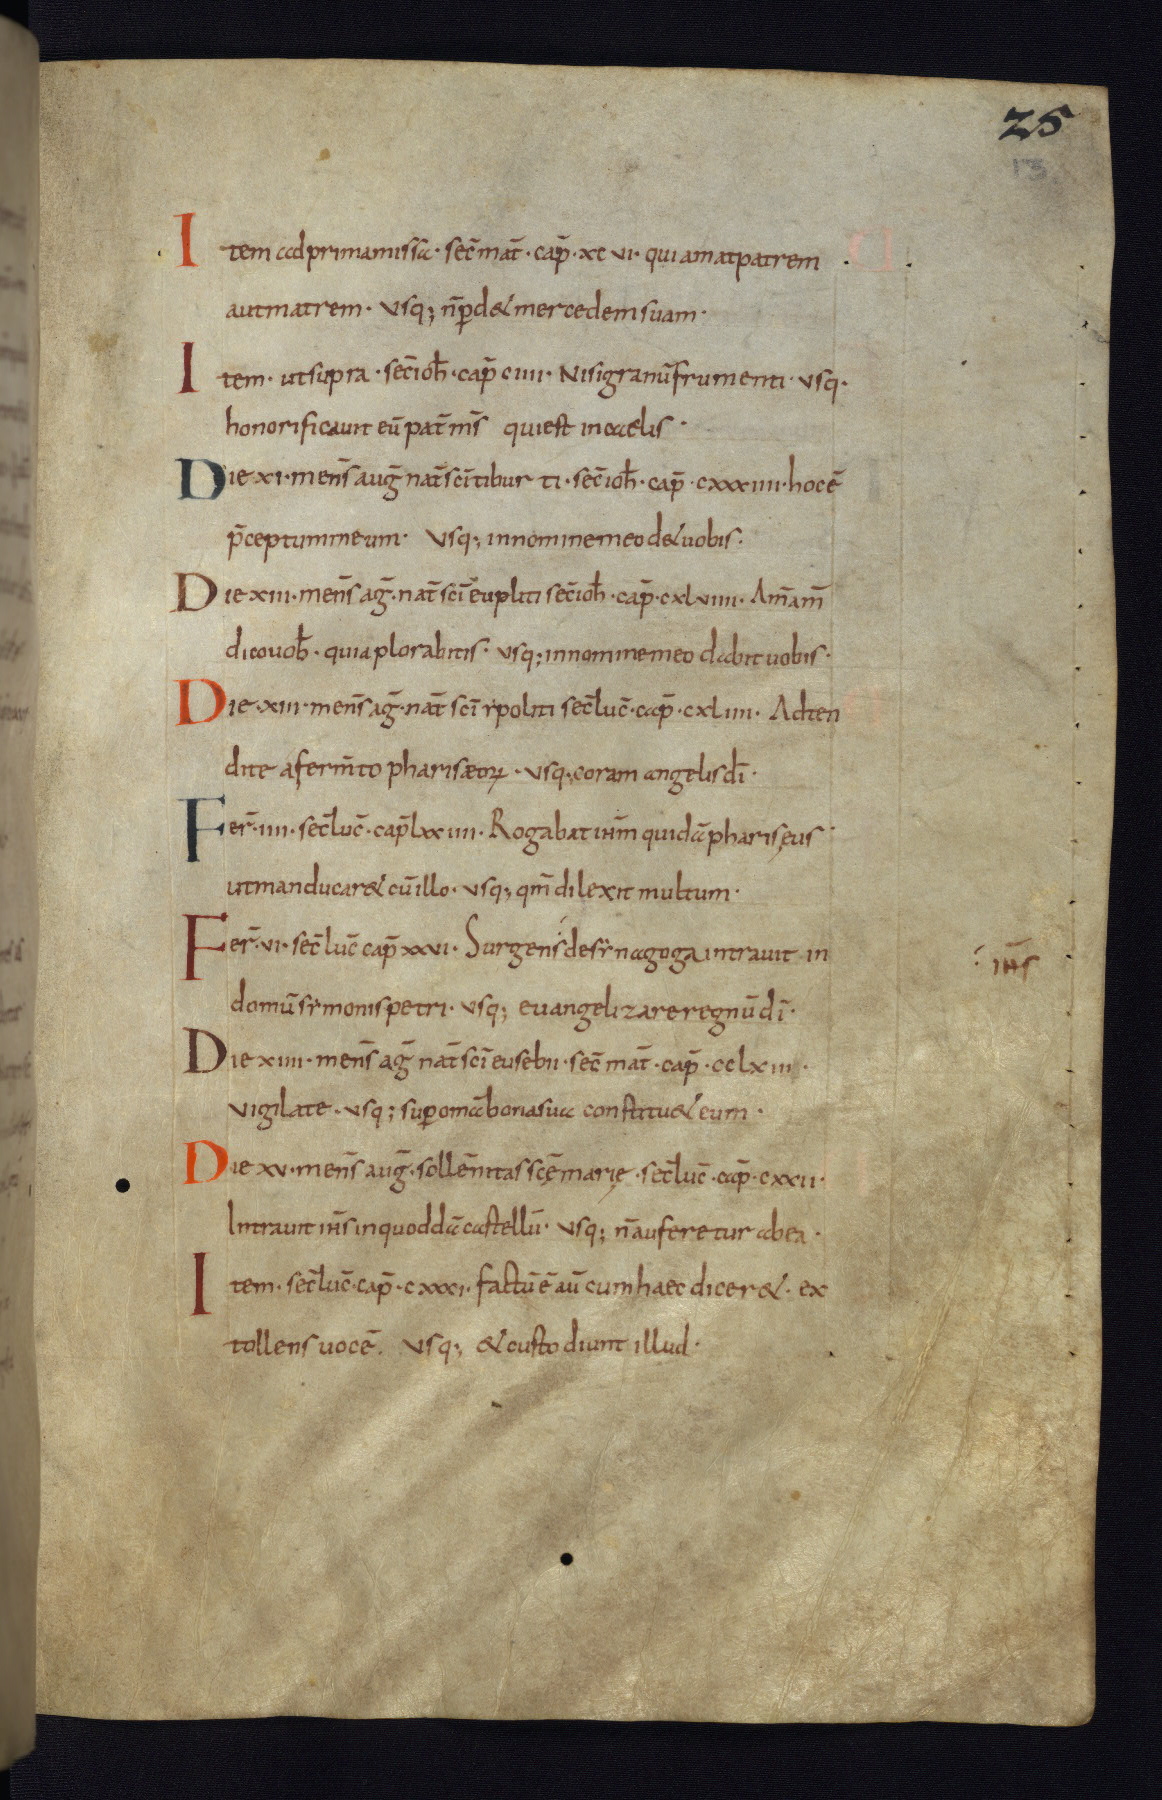 25
13
Item ad prima missa · sec̄ mat̄ · cap̄ · xc vi · qui amat patrem
aut matrem · usq; n̄ p̄d& mercedem suam ·
Item · ut supra · sec̄ ioh̄ · cap̄ ciiii · Nisi granū frumenti · usq ·
honorificauit eū pat̄ m̄s qui est in caelis ·
Die xi · mens̄ auḡ nat̄ sc̄i tiburti · sec̄ ioh̄ · cap̄ · cxxxiiii · hoc ē
p̄ceptum meum · usq; in nomine meo d& uobis ·
Die xiii · mens̄ aḡ · nat̄ sc̄i eupliti sec̄ ioh̄ · cap̄ · cxlviiii · Am̄ am̄
dico uob̄ · quia plorabitis · usq; in nomine meo dabit uobis ·
Die · xiii · mens̄ aḡ · nat̄ sc̄i ypoliti sec̄ luc̄ · cap̄ · cxliiii · Adten
dite a ferm̄to pharisaeoꝝ · usq; coram angelis dī ·
Fer̄ · iiii · sec̄ luc̄ · cap̄ lxxiiii · Rogabat ihm̄ quidā pharisęus
ut manducar& cū illo · usq; qm̄ dilexit multum ·
Fer̄ · vi · sec̄ luc̄ cap̄ xxvi · Surgens de synagoga intrauit in
ihs̄
domū symonis petri · usq; euangelizare regnū dī ·
Die xiiii · mens̄ aḡ nat̄ sc̄i eusebii · sec̄ mat̄ · cap̄ · cclxiii ·
vigilate · usq; sup̄ omā bona sua constitu& eum ·
Die xv · mens̄ auḡ · sollēnitas sc̄ę marię · sec̄ luc̄ · cap̄ · cxxii ·
Intrauit ih̄s in quoddā castellū · usq; n̄ auferetur ab ea ·
Item · sec̄ luc̄ · cap̄ · cxxxi · factū ē aū cum haec dicer& · ex
tollens uocē · usq; & custodiunt illud ·